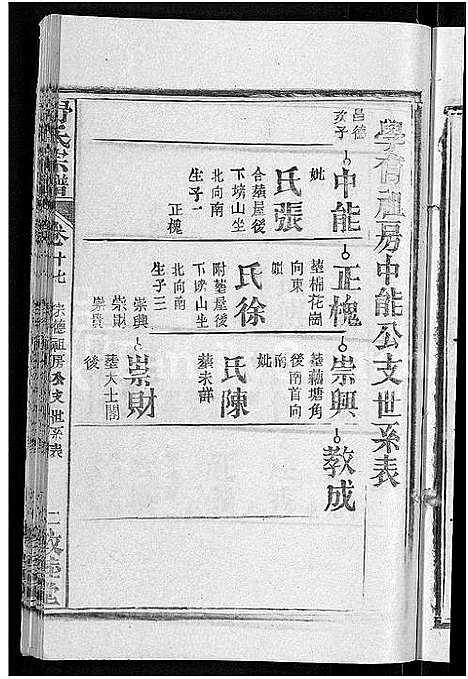 學魯祖房中能公支世系表
昌德
次子
中能
妣
張氏
合塟屋後
下塝山坐
北向南
生子一
正槐
正槐
塟棉花崗
向東
徐氏
附塟屋後
下塝山坐
北向南
生子三
崇興
崇財
崇貴
崇興
塟藕塘角
後南首向
南
妣
陳氏
塟未詳
崇財
塟大士閣
後
教成
氏宗譜
卷十七
宗德祖房公支世系表
敦睦堂